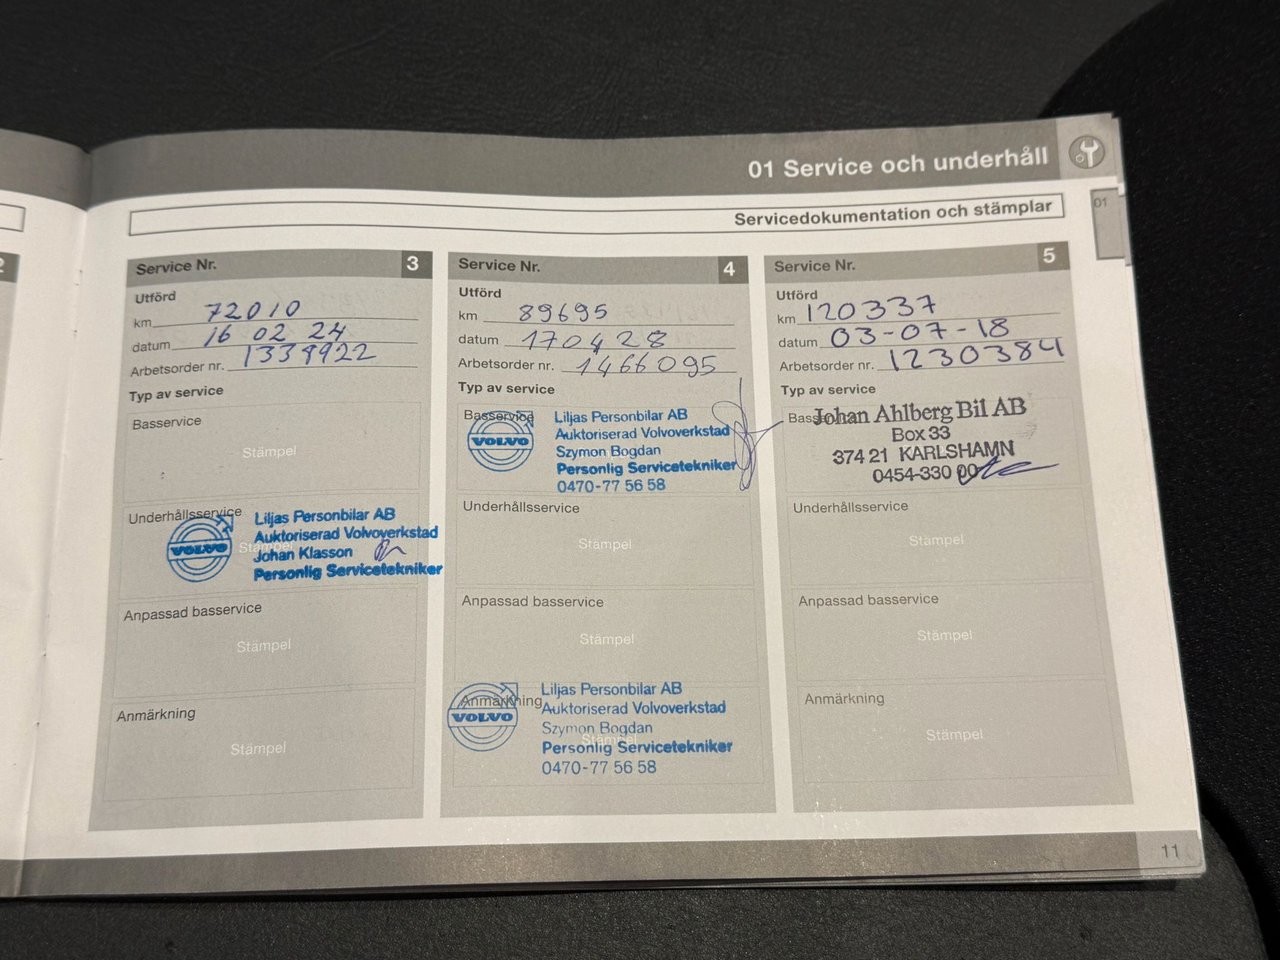 01 Service och underhåll
01
Servicedokumentation och stämplar
2
Service Nr. 3
Utförd
km 72010
datum 16 02 24
Arbetsorder nr. 1339922
Typ av service
Basservice
Stämpel
Underhållsservice
Stämpel
VOLVO
Liljas Personbilar AB
Auktoriserad Volvoverkstad
Johan Klasson
Personlig Servicetekniker
Anpassad basservice
Stämpel
Anmärkning
Stämpel
Service Nr. 4
Utförd
km 89695
datum 170428
Arbetsorder nr. 1466095
Typ av service
Basservice
VOLVO
Liljas Personbilar AB
Auktoriserad Volvoverkstad
Szymon Bogdan
Personlig Servicetekniker
0470-77 56 58
Underhållsservice
Stämpel
Anpassad basservice
Stämpel
Anmärkning
Stämpel
VOLVO
Liljas Personbilar AB
Auktoriserad Volvoverkstad
Szymon Bogdan
Personlig Servicetekniker
0470-77 56 58
Service Nr. 5
Utförd
km 120337
datum 03-07-18
Arbetsorder nr. 1230384
Typ av service
Johan Ahlberg Bil AB
Box 33
374 21 KARLSHAMN
0454-330 00
Underhållsservice
Stämpel
Anpassad basservice
Stämpel
Anmärkning
Stämpel
11